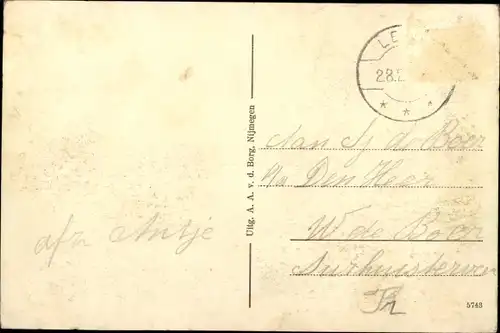 afz Antje
Uitg. A. A. v. d. Borg, Nijmegen
LE
28.
Aan Sj d Boer
p/a Den Heer
W. de Boer
Surhuisterveen
5743